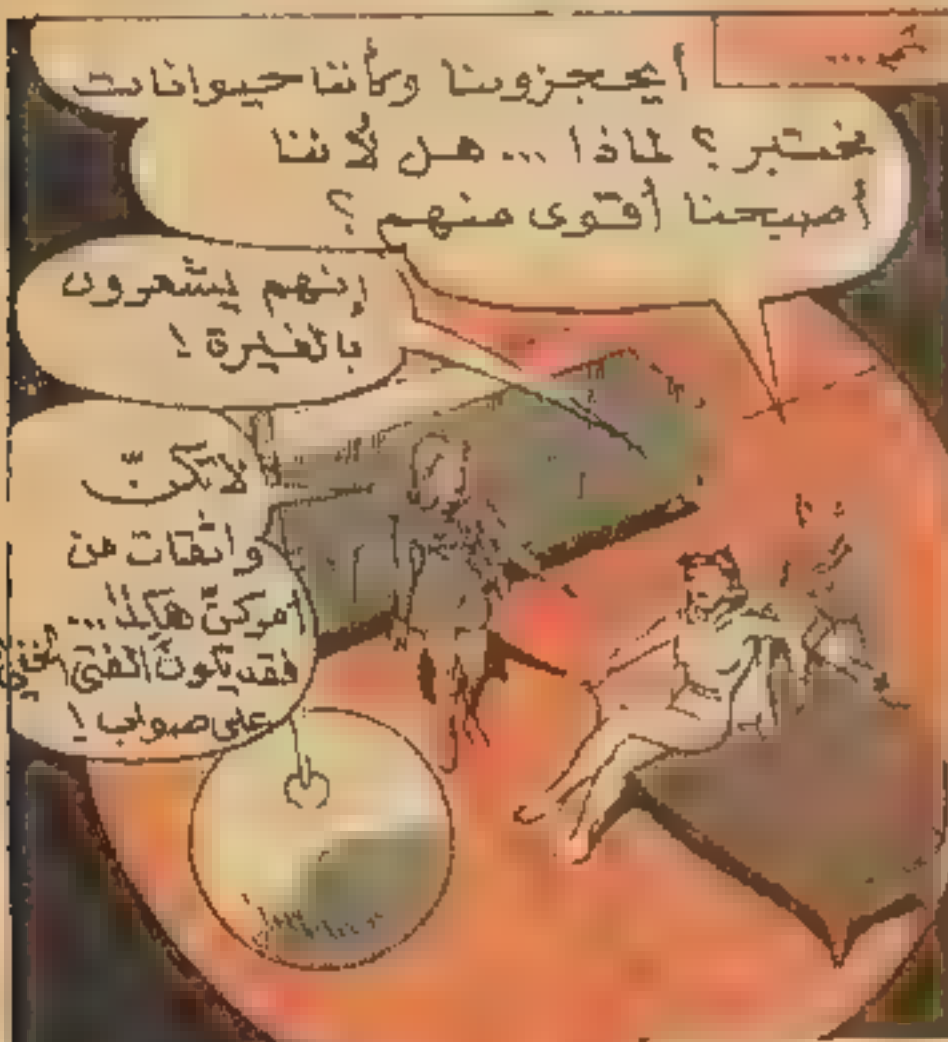 ثم...
أيحجزوننا وكأننا حيوانات
مختبر؟ لماذا... هل لأننا
أصبحنا أقوى منهم؟
إنهم يشعرون
بالغيرة!
لا تكنّ
واثقات من
أمركنّ هكذا...
فقد يكون الفتى
على صواب!